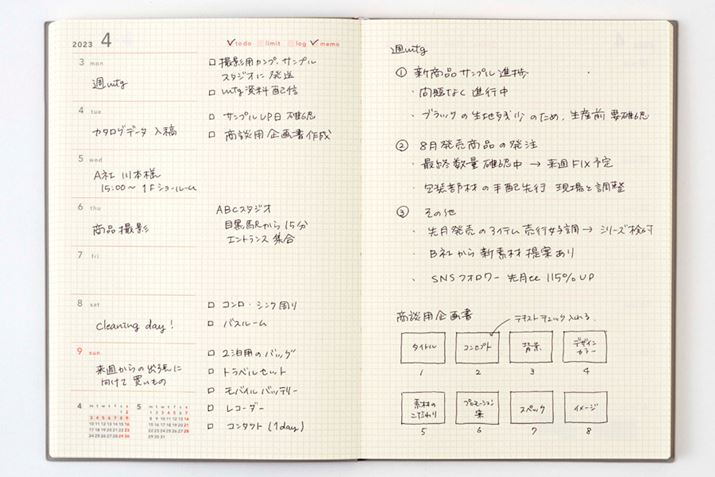 2023 4
todo limit log memo
3 mon
週mtg
撮影用カンプ、サンプル
スタジオに 発送
mtg資料配信
4 tue
カタログデータ 入稿
サンプルUP日 確認
商談用企画書作成
5 wed
A社 川本様
15:00〜 1Fショールーム
6 thu
商品撮影
ABCスタジオ
目黒駅から 15分
エントランス 集合
7 fri
8 sat
cleaning day!
コンロ・シンク周り
バスルーム
9 sun
来週からの出張に
向けて 買いもの
2泊用のバッグ
トラベルセット
モバイルバッテリー
レコーダー
コンタクト (1day)
4 m t w t f s s
1 2
3 4 5 6 7 8 9
10 11 12 13 14 15 16
17 18 19 20 21 22 23
24 25 26 27 28 29 30
5 m t w t f s s
1 2 3 4 5 6 7
8 9 10 11 12 13 14
15 16 17 18 19 20 21
22 23 24 25 26 27 28
29 30 31
週mtg
① 新商品サンプル 進捗
・問題なく 進行中
・ブラックの生地残少のため、生産前 要確認
② 8月発売商品の発注
・最終数量 確認中 → 来週FIX予定
・包装部材の手配先行 現場と調整
③ その他
・先月発売のアイテム 売行好調→ シリーズ検討
・B社から 新素材 提案あり
・SNSフォロワー 先月比 115%UP
商談用企画書
テキストチェック入れる
タイトル
コンセプト
背景
デザイン
カラー
1 2 3 4
素材の
こだわり
プロモーション
案
スペック
イメージ
5 6 7 8